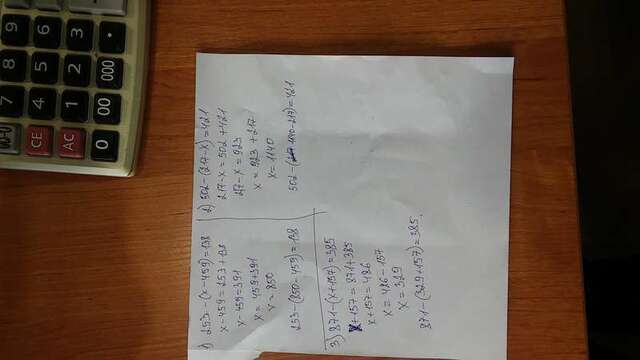 00→0
7 8 9
CE 4 5 6
AC 1 2 3
0 00 000 .
1) 253-(x-459)=138
x-459=253+138
x-459=391
x=459+391
x=850
253-(850-459)=138
2) 502-(217-x)=421
217-x=502+421
217-x=923
x=923+217
x=1140
502-(1140-217)=421
3) 871-(x+157)=385
x+157=871+385
x+157=486
x=486-157
x=329
871-(329+157)=385.